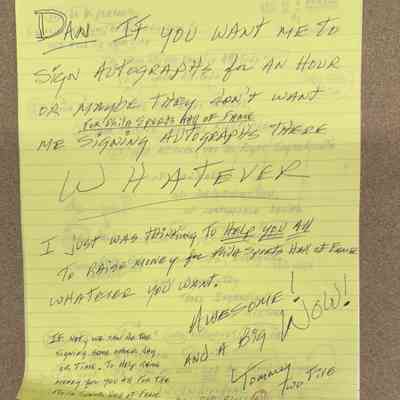 DAN IF YOU WANT ME TO
SIGN AUTOGRAPHS for AN HOUR
OR MAYBE THEY DON'T WANT
FOR Phila Sports HALL OF FAME
ME SIGNING AUTOGRAPHS THERE
WHATEVER
I JUST WAS THINKING TO HELP YOU All
TO RAISE MONEY for Phila Sports HALL OF FAME
WHATEVER YOU WANT.
AWESOME!
AND A BIG WOW!
IF NOT, WE CAN DO THE
SIGNING SOME OTHER DAY
OR TIME. TO HELP RAISE
MONEY FOR YOU All FOR THE
Phila Sports HALL OF FAME
Tommy